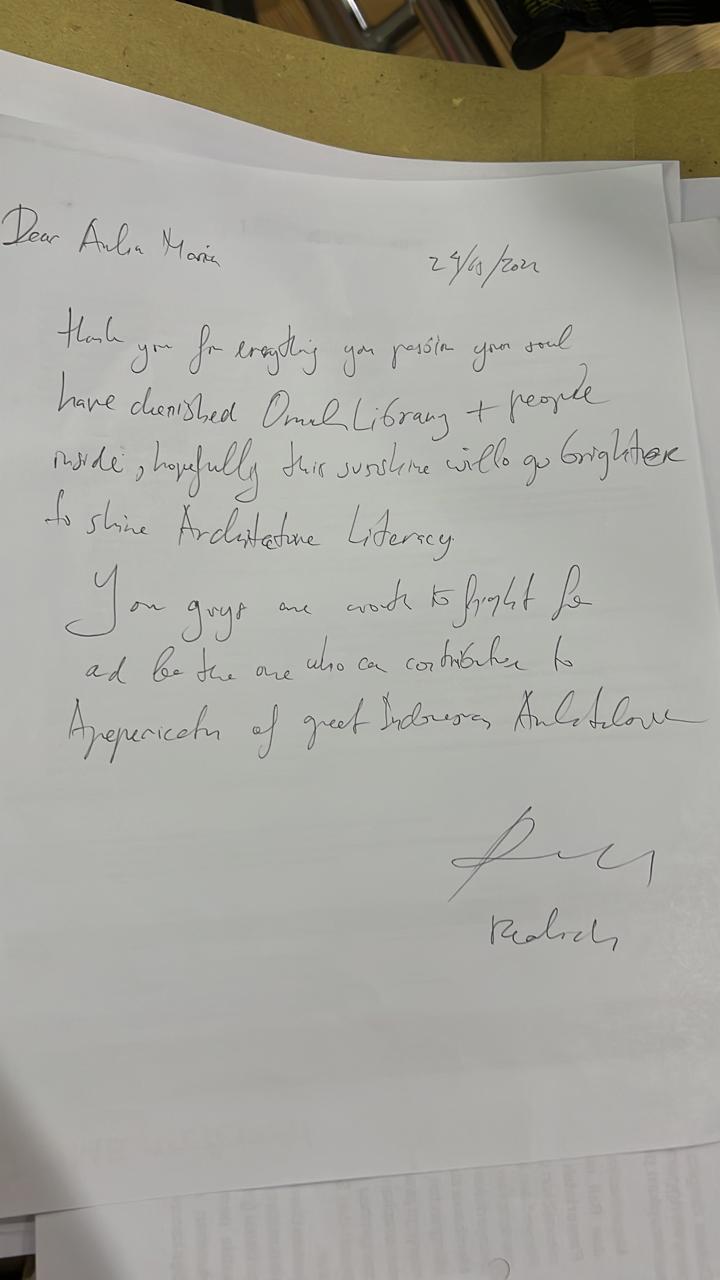 Dear Aulia Maria
24/ /2022
thank you for everything you passion your soul
have cherished Omah Library + people
inside, hopefully this sunshine will go brighter
to shine Architecture Literacy
You guys are worth to fright for
ad be the one who can contribute to
of great Indonesia